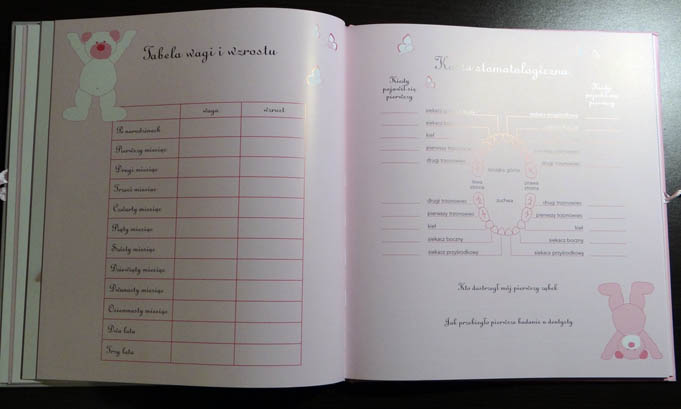 Tabela wagi i wzrostu
waga wzrost
Po narodzinach
Pierwszy miesiąc
Drugi miesiąc
Trzeci miesiąc
Czwarty miesiąc
Piąty miesiąc
Szósty miesiąc
Dziewiąty miesiąc
Dwunasty miesiąc
Osiemnasty miesiąc
Dwa lata
Trzy lata
Karta stomatologiczna
Kiedy
pojawił się
pierwszy
Kiedy
pierwszy
siekacz
siekacz
kieł
pierwszy trzonowiec
drugi trzonowiec
szczęka górna
lewa
strona
prawa
strona
żuchwa
drugi trzonowiec drugi trzonowiec
pierwszy trzonowiec pierwszy trzonowiec
kieł kieł
siekacz boczny siekacz boczny
siekacz przyśrodkowy siekacz przyśrodkowy
Kto dostrzegł mój pierwszy ząbek
Jak przebiegło pierwsze badanie u dentysty